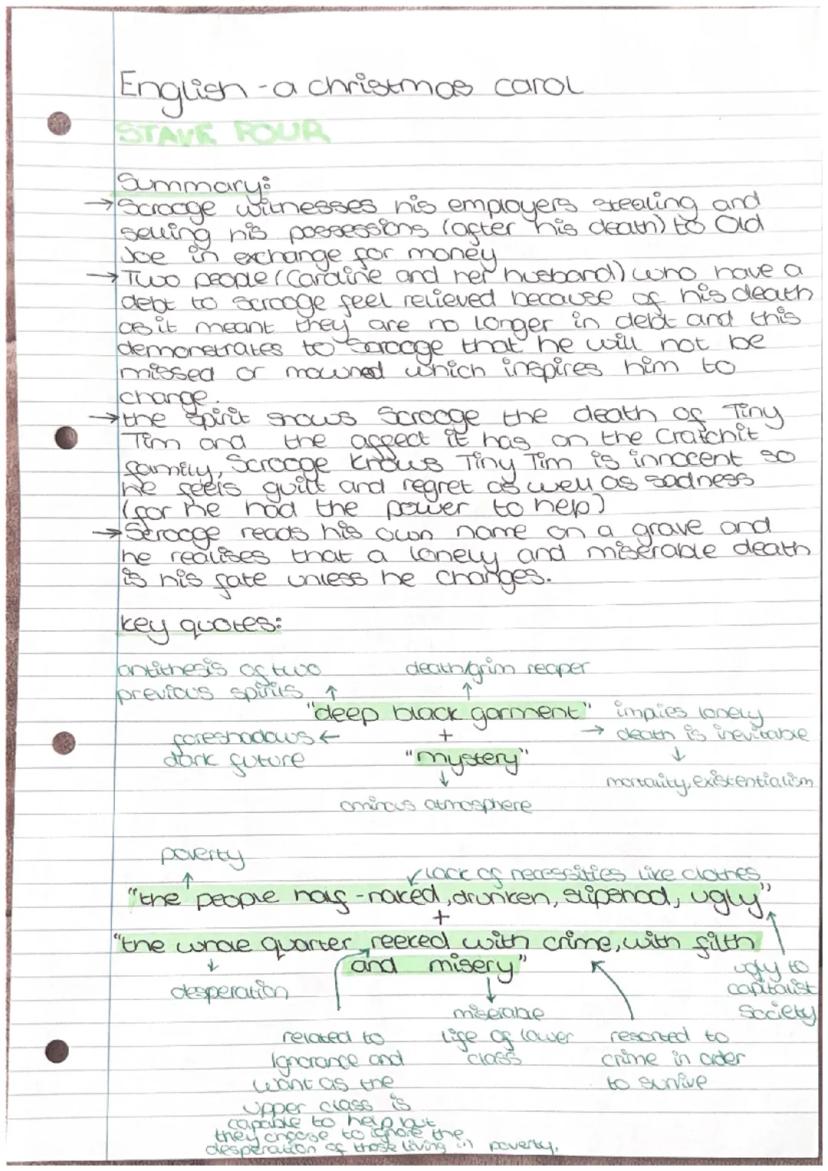 English - a christmas carol
STAVE FOUR
Summary:
→ Scrooge witnesses his employers stealing and
selling his possessions (after his death) to Old
Joe in exchange for money
→ Two people (Caroline and her husband) who have a
debt to Scrooge feel relieved because of his death
as it meant they are no longer in debt and this
demonstrates to Scrooge that he will not be
missed or mourned which inspires him to
change.
→ the spirit shows Scrooge the death of Tiny
Tim and the affect it has on the Cratchit
family, Scrooge knows Tiny Tim is innocent so
he feels guilt and regret as well as sadness
(for he had the power to help)
→ Scrooge reads his own name on a grave and
he realises that a lonely and miserable death
is his fate unless he changes.
key quotes:
antithesis of two
previous spirits ↑
death/grim reaper
↑
"deep black garment"
+
"mystery"
foreshadows ←
dark future
→ implies lonely
death is inevitable
↓
mortality, existentialism
↓
ominous atmosphere
poverty
↑
lack of necessities like clothes
"the people half-naked, drunken, slipshod, ugly"
+
"the whole quarter reeked with crime, with filth
and misery"
↓
desperation
ugly to
capitalist
society
related to
Ignorance and
Want as the
upper class is
capable to help but
they choose to ignore the
desperation of those living in poverty.
↓
miserable
life of lower
class
resorted to
crime in order
to survive